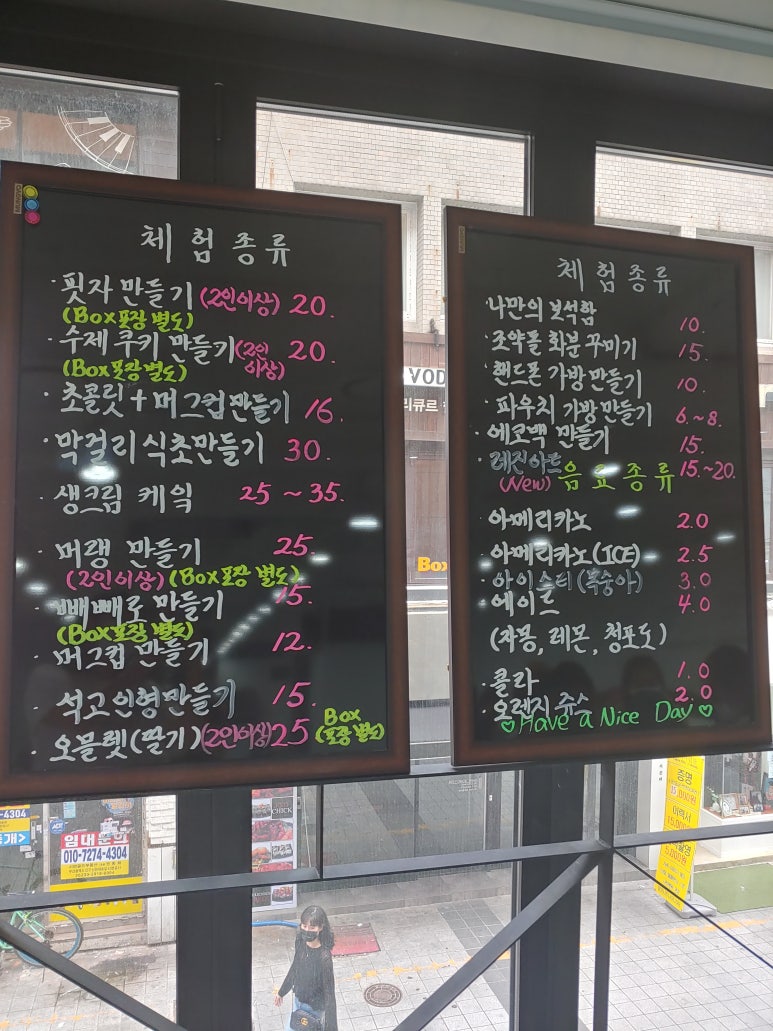 체험종류
·핏자 만들기 (2인이상) 20.
(Box포장 별도)
·수제 쿠키 만들기 (2인이상) 20.
(Box포장별도)
·초콜릿+머그컵만들기 16.
·막걸리식초만들기 30.
·생크림 케익 25 ~ 35.
·머랭 만들기 25.
(2인이상) (Box포장 별도)
·빼빼로 만들기 15.
(Box포장 별도)
·머그컵 만들기 12.
·석고인형만들기 15.
·오믈렛(딸기) (2인이상) 25 Box (포장 별도)
체험종류
·나만의 보석함 10.
·조약돌 화분 꾸미기 15.
·핸드폰 가방만들기 10.
·파우치 가방만들기 6.~8.
·에코백 만들기 15.
·레진아트 15.~20.
(New) 음료종류
·아메리카노 2.0
·아메리카노(ICE) 2.5
·아이스티(복숭아) 3.0
·에이드 4.0
(자몽, 레몬, 청포도)
·콜라 1.0
·오렌지 쥬스 2.0
♡Have a Nice Day♡
VOD
리큐르
Box
임대문의
010-7274-4304
4304
CHICK
증명
이력서